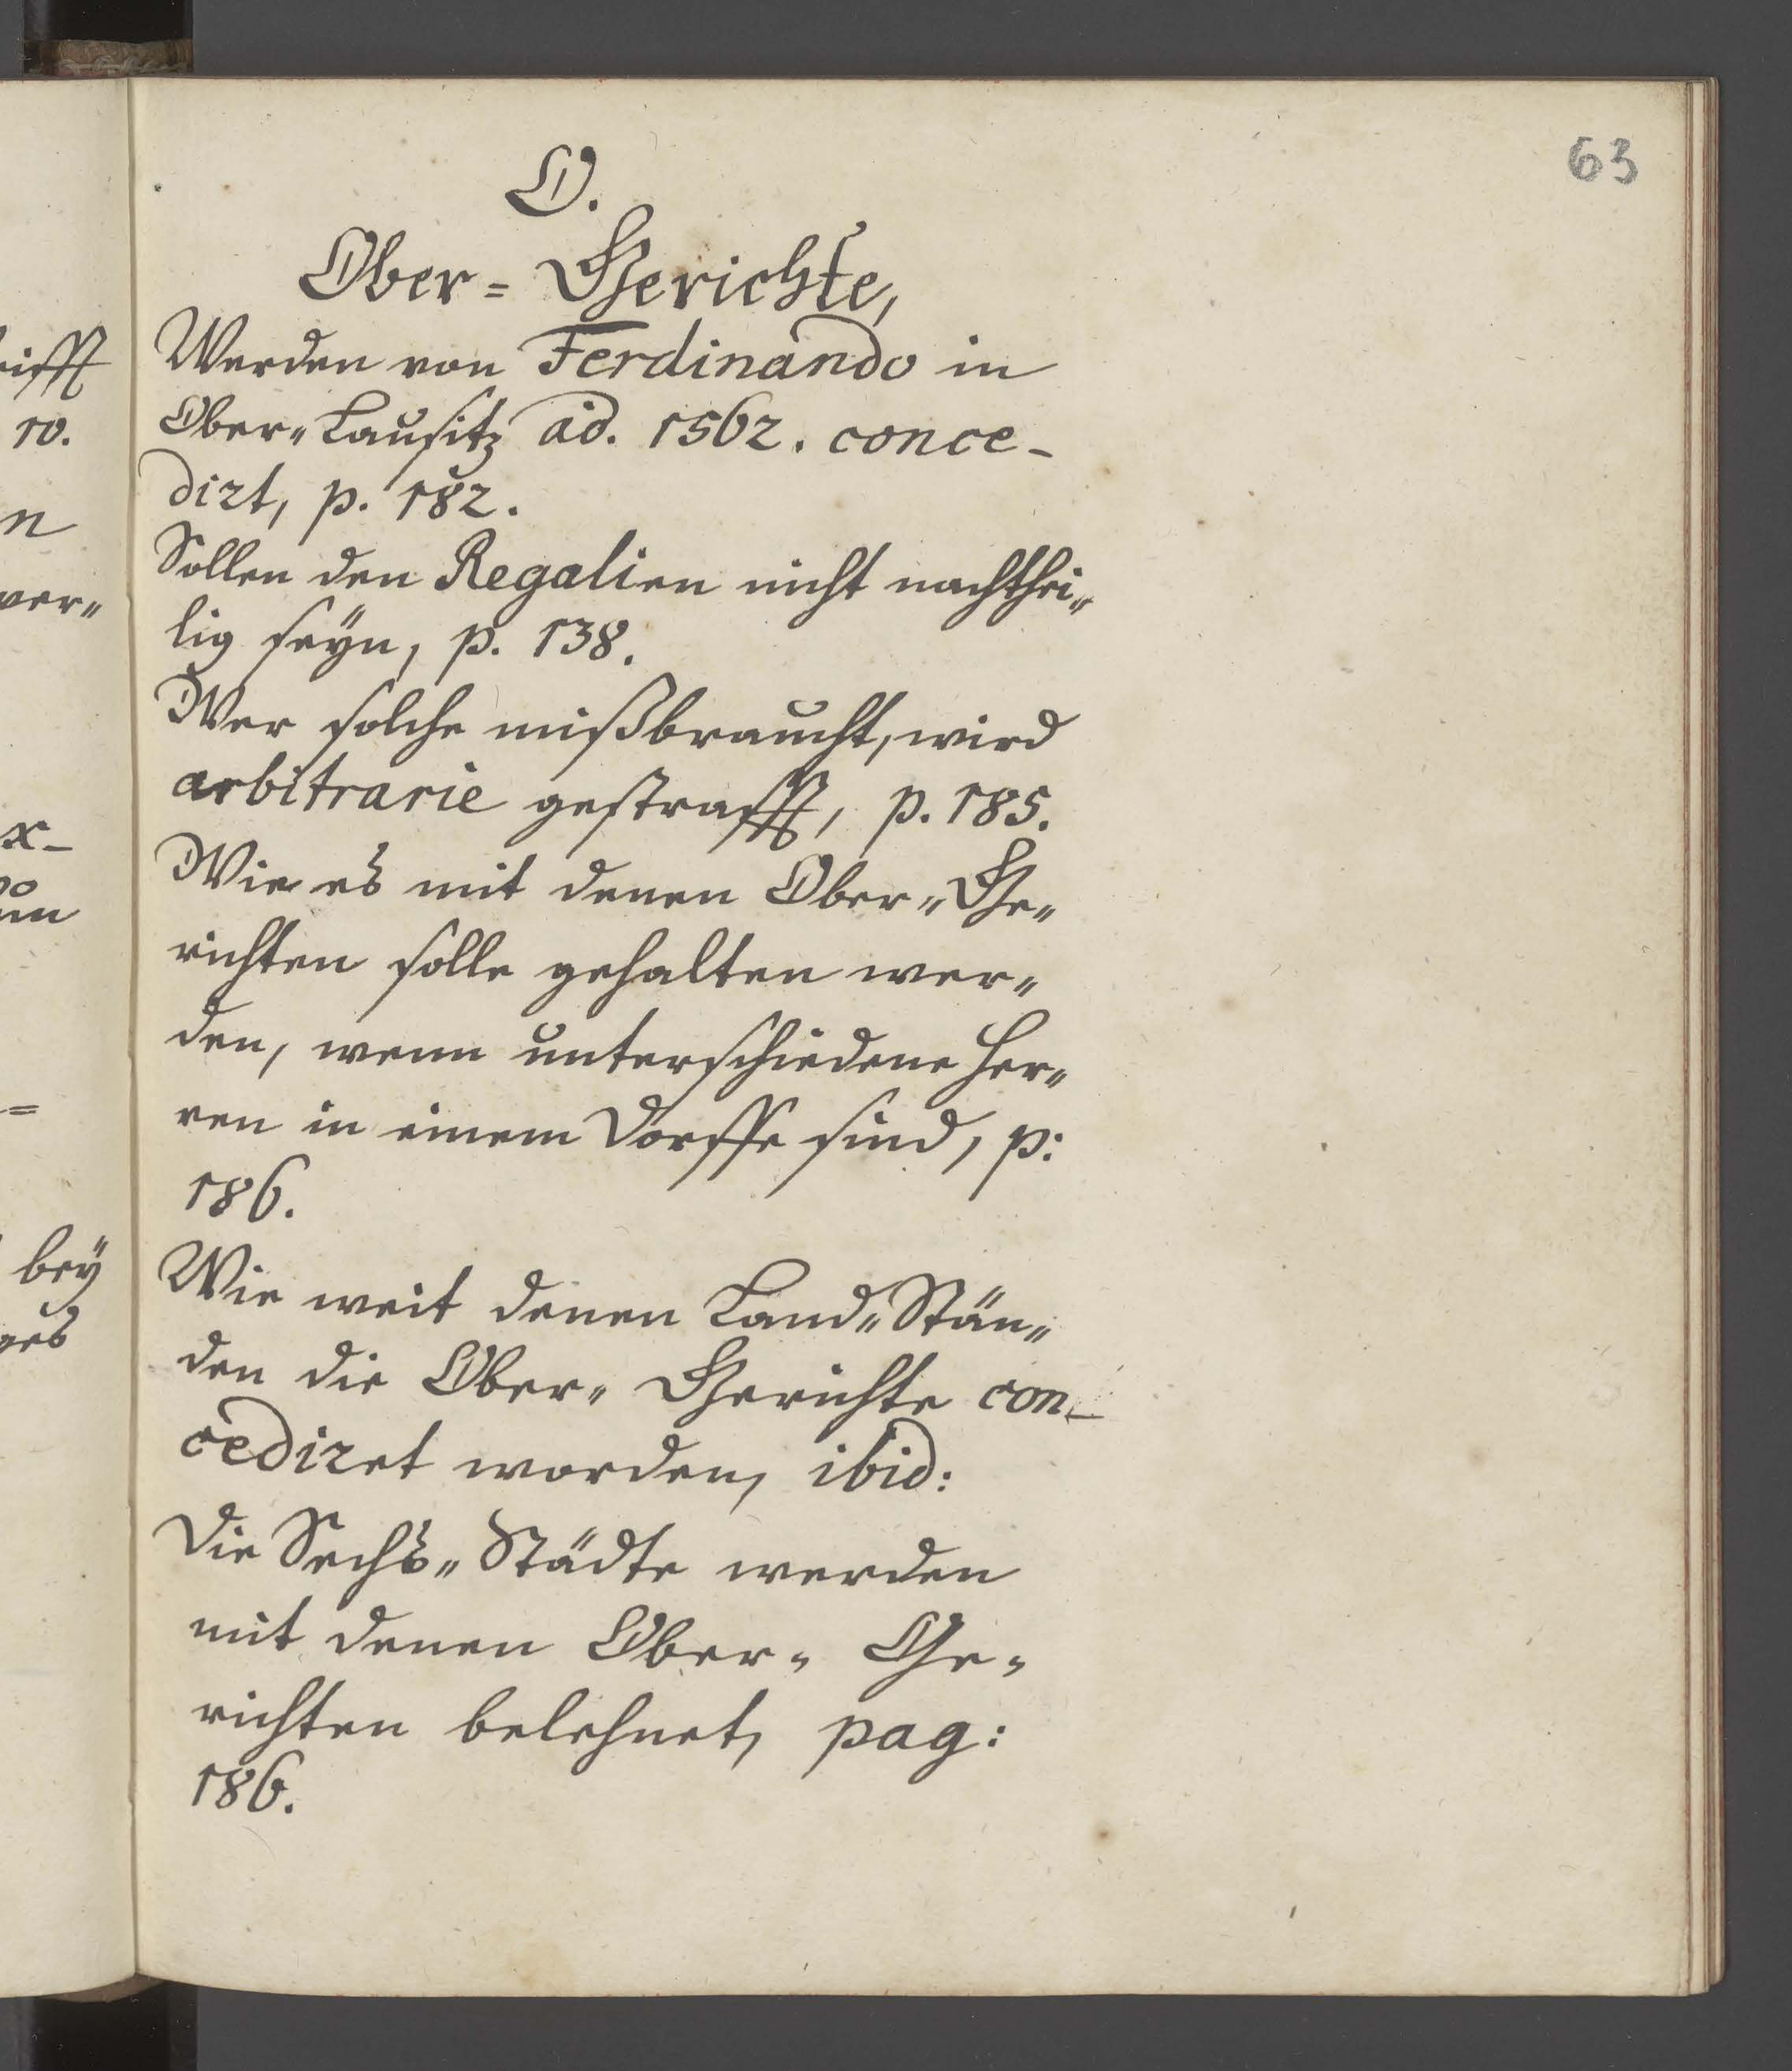 63
O.
Ober= Gerichte,
Werden von Ferdinando in
Ober„Lausitz ad. 1562. conce-
dirt, p. 182.
Sollen den Regalien nicht nachthei„
lig seÿn, p. 138.
Wer solche mißbraucht, wird
arbitrarie gestrafft, p. 185.
Wie es mit denen Ober„Ge„
richten solle gehalten wer„
den, wenn unterschiedene Her„
ren in einem Dorffe sind, p:
186.
Wie weit denen Land„Stän„
den die Ober„ Gerichte con-
cediret worden, ibid:
Die Sechs„Städte werden
mit denen Ober„ Ge„
richten belehnet, pag:
186.